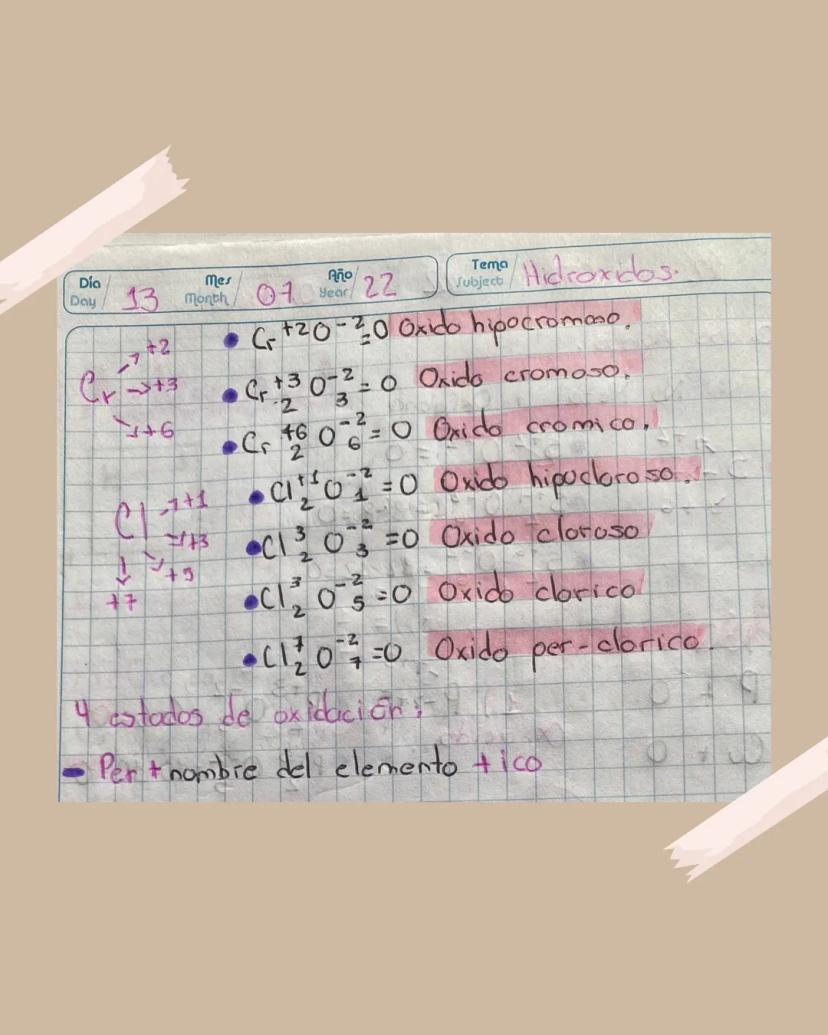 Día Day 13 Mes Month 07 Año Year 22 Tema Subject Hidroxidos.
Cr +2 +3 +6
• Cr⁺²O⁻²=0 Oxido hipocromoso.
• Cr₂⁺³ O₃⁻² = 0 Oxido cromoso.
• Cr₂⁺⁶ O₆⁻² = 0 Oxido cromico.
Cl +1 +3 +5 +7
• Cl₂⁺¹ O₁⁻² = 0 Oxido hipocloroso.
• Cl₂³ O₃⁻² = 0 Oxido cloroso
• Cl₂³ O₅⁻² = 0 Oxido clorico
• Cl₂⁷ O₇⁻² = 0 Oxido per-clorico.
4 estados de oxidación:
- Per + nombre del elemento + ico